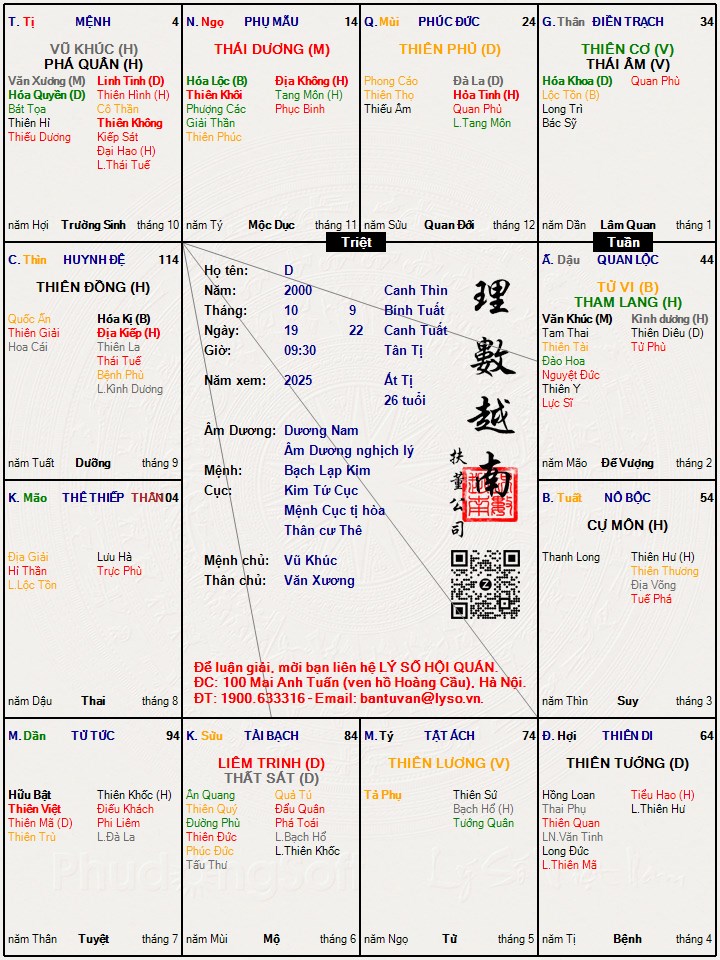 T. Tị MỆNH 4
VŨ KHÚC (H)
PHÁ QUÂN (H)
Văn Xương (M) Linh Tinh (D)
Hóa Quyền (D) Thiên Hình (H)
Bát Tọa Cô Thần
Thiên Hỉ Thiên Không
Thiếu Dương Kiếp Sát
Đại Hao (H)
L.Thái Tuế
năm Hợi Trường Sinh tháng 10
N. Ngọ PHỤ MẪU 14
THÁI DƯƠNG (M)
Hóa Lộc (B) Địa Không (H)
Thiên Khôi Tang Môn (H)
Phượng Các Phục Binh
Giải Thần
Thiên Phúc
năm Tý Mộc Dục tháng 11
Q. Mùi PHÚC ĐỨC 24
THIÊN PHỦ (D)
Phong Cáo Đà La (D)
Thiên Thọ Hỏa Tinh (H)
Thiếu Âm Quan Phủ
L.Tang Môn
năm Sửu Quan Đới tháng 12
G. Thân ĐIỀN TRẠCH 34
THIÊN CƠ (V)
THÁI ÂM (V)
Hóa Khoa (D) Quan Phù
Lộc Tồn (B)
Long Trì
Bác Sỹ
năm Dần Lâm Quan tháng 1
Triệt
Tuần
C. Thìn HUYNH ĐỆ 114
THIÊN ĐỒNG (H)
Quốc Ấn Hóa Kị (B)
Thiên Giải Địa Kiếp (H)
Hoa Cái Thiên La
Thái Tuế
Bệnh Phù
L.Kình Dương
năm Tuất Dưỡng tháng 9
Họ tên: D
Năm: 2000 Canh Thìn
Tháng: 10 9 Bính Tuất
Ngày: 19 22 Canh Tuất
Giờ: 09:30 Tân Tị
Năm xem: 2025 Ất Tị
26 tuổi
Âm Dương: Dương Nam
Âm Dương nghịch lý
Mệnh: Bạch Lạp Kim
Cục: Kim Tứ Cục
Mệnh Cục tị hòa
Thân cư Thê
Mệnh chủ: Vũ Khúc
Thân chủ: Văn Xương
理數越南
扶董公司
Để luận giải, mời bạn liên hệ LÝ SỐ HỘI QUÁN.
ĐC: 100 Mai Anh Tuấn (ven hồ Hoàng Cầu), Hà Nội.
ĐT: 1900.633316 - Email: bantuvan@lyso.vn.
Ấ. Dậu QUAN LỘC 44
TỬ VI (B)
THAM LANG (H)
Văn Khúc (M) Kình dương (H)
Tam Thai Thiên Diêu (D)
Thiên Tài Tử Phù
Đào Hoa
Nguyệt Đức
Thiên Y
Lực Sĩ
năm Mão Đế Vượng tháng 2
K. Mão THÊ THIẾP THÂN 104
Địa Giải Lưu Hà
Hỉ Thần Trực Phù
L.Lộc Tồn
năm Dậu Thai tháng 8
B. Tuất NÔ BỘC 54
CỰ MÔN (H)
Thanh Long Thiên Hư (H)
Thiên Thương
Địa Võng
Tuế Phá
năm Thìn Suy tháng 3
M. Dần TỬ TỨC 94
Hữu Bật Thiên Khốc (H)
Thiên Việt Điếu Khách
Thiên Mã (D) Phi Liêm
Thiên Trù L.Đà La
năm Thân Tuyệt tháng 7
K. Sửu TÀI BẠCH 84
LIÊM TRINH (D)
THẤT SÁT (D)
Ân Quang Quả Tú
Thiên Quý Đẩu Quân
Đường Phù Phá Toái
Thiên Đức L.Bạch Hổ
Phúc Đức L.Thiên Khốc
Tấu Thư
năm Mùi Mộ tháng 6
M. Tý TẬT ÁCH 74
THIÊN LƯƠNG (V)
Tả Phụ Thiên Sứ
Bạch Hổ (H)
Tướng Quân
năm Ngọ Tử tháng 5
Đ. Hợi THIÊN DI 64
THIÊN TƯỚNG (D)
Hồng Loan Tiểu Hao (H)
Thai Phụ L.Thiên Hư
Thiên Quan
LN.Văn Tinh
Long Đức
L.Thiên Mã
năm Tị Bệnh tháng 4